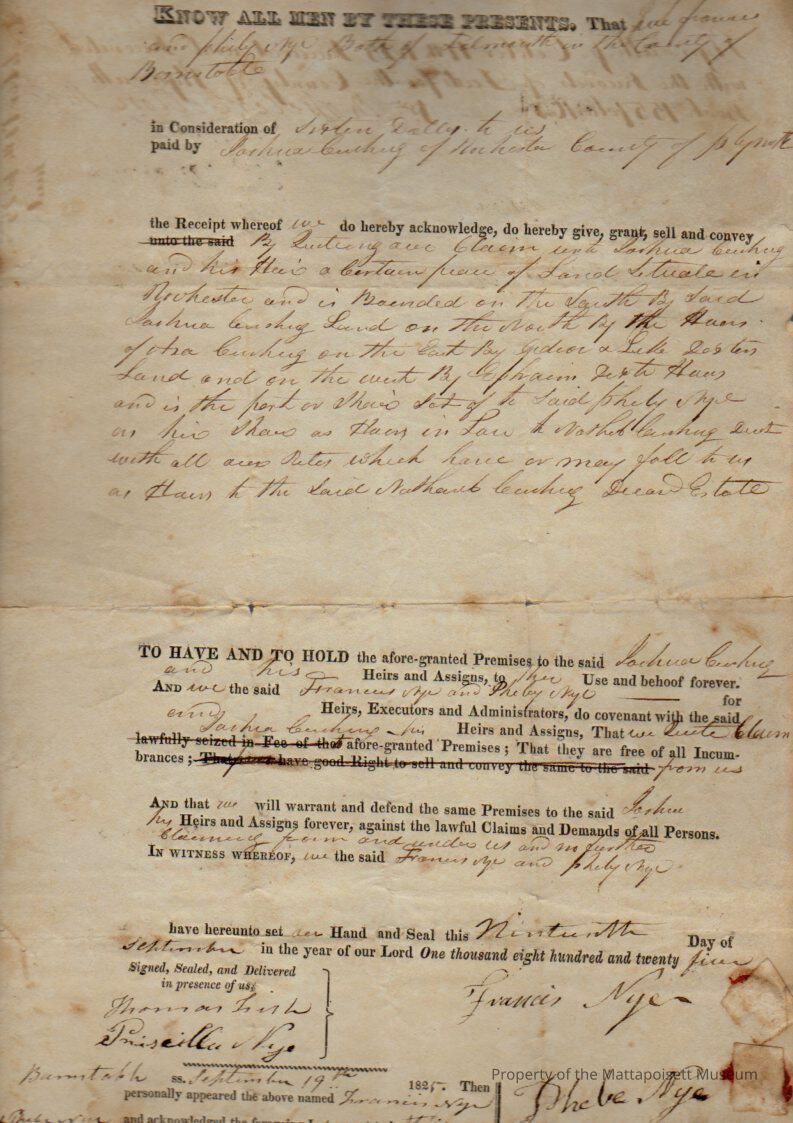 KNOW ALL MEN BY THESE PRESENTS. That we Francis
and Pheby Nye Both of Falmouth in the County of
Barnstable
in Consideration of Sixteen Dolls. to us
paid by Joshua Cushing of Rochester County of Plymouth
the Receipt whereof we do hereby acknowledge, do hereby give, grant, sell and convey
unto the said By Quiting our Claim unto Joshua Cushing
and his Hairs a Certain peace of Land Situate in
Rochester and is Bounded on the South By Said
Joshua Cushing Land on the North By the Hairs
of Asa Cushing on the East By Gideon & Luke Dexters
Land and on the west By Ephraim Hairs
and is the part or Shair Sot of to Said Pheby Nye
on his Shair as Hairs in Law to Nathel Cushing
with all our Rites which have or may fall to us
as Hairs to the Said Nathanl Cushing Decasd Estate
TO HAVE AND TO HOLD the afore-granted Premises to the said Joshua Cushing
and his Heirs and Assigns, to Use and behoof forever.
AND we the said Francis Nye and Pheby Nye for
and Heirs, Executors and Administrators, do covenant with the said
Joshua Cushing his Heirs and Assigns, That we Quite Claim
lawfully seized in Fee of that afore-granted Premises; That they are free of all Incum-
brances; That have good Right to sell and convey the same to the said from us
AND that we will warrant and defend the same Premises to the said Joshua
his Heirs and Assigns forever, against the lawful Claims and Demands of all Persons.
Claiming from and under us and no further
IN WITNESS WHEREOF, we the said Francis Nye and Pheby Nye
have hereunto set our Hand and Seal this Nintenth Day of
September in the year of our Lord One thousand eight hundred and twenty five
Signed, Sealed, and Delivered
in presence of us;
Thomas Fish
Priscilla Nye
Francis Nye
Barnstable ss. September 19th 1825. Then
personally appeared the above named Francis Nye
Phebe Nye
and acknowledged the foregoing
Property of the Mattapoisett Museum